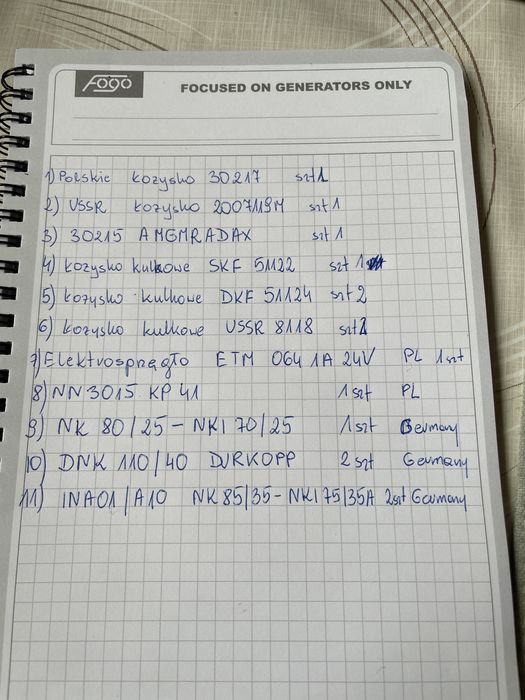 Fogo
FOCUSED ON GENERATORS ONLY
1) Polskie Łożysko 30217 szt 1
2) USSR Łożysko 2007119M szt 1
3) 30215 AMGMRADAX szt 1
4) Łożysko kulkowe SKF 51122 szt 1
5) Łożysko kulkowe DKF 51124 szt 2
6) Łożysko kulkowe USSR 8118 szt 2
7) Elektrosprzęgło ETM 064 1A 24V PL 1 szt
8) NN3015 KP 41 1 szt PL
9) NK 80/25 – NKI 70/25 1 szt Germany
10) DNK 110/40 DURKOPP 2 szt Germany
11) INA01/A10 NK 85/35 – NKI 75/35A 2szt Germany